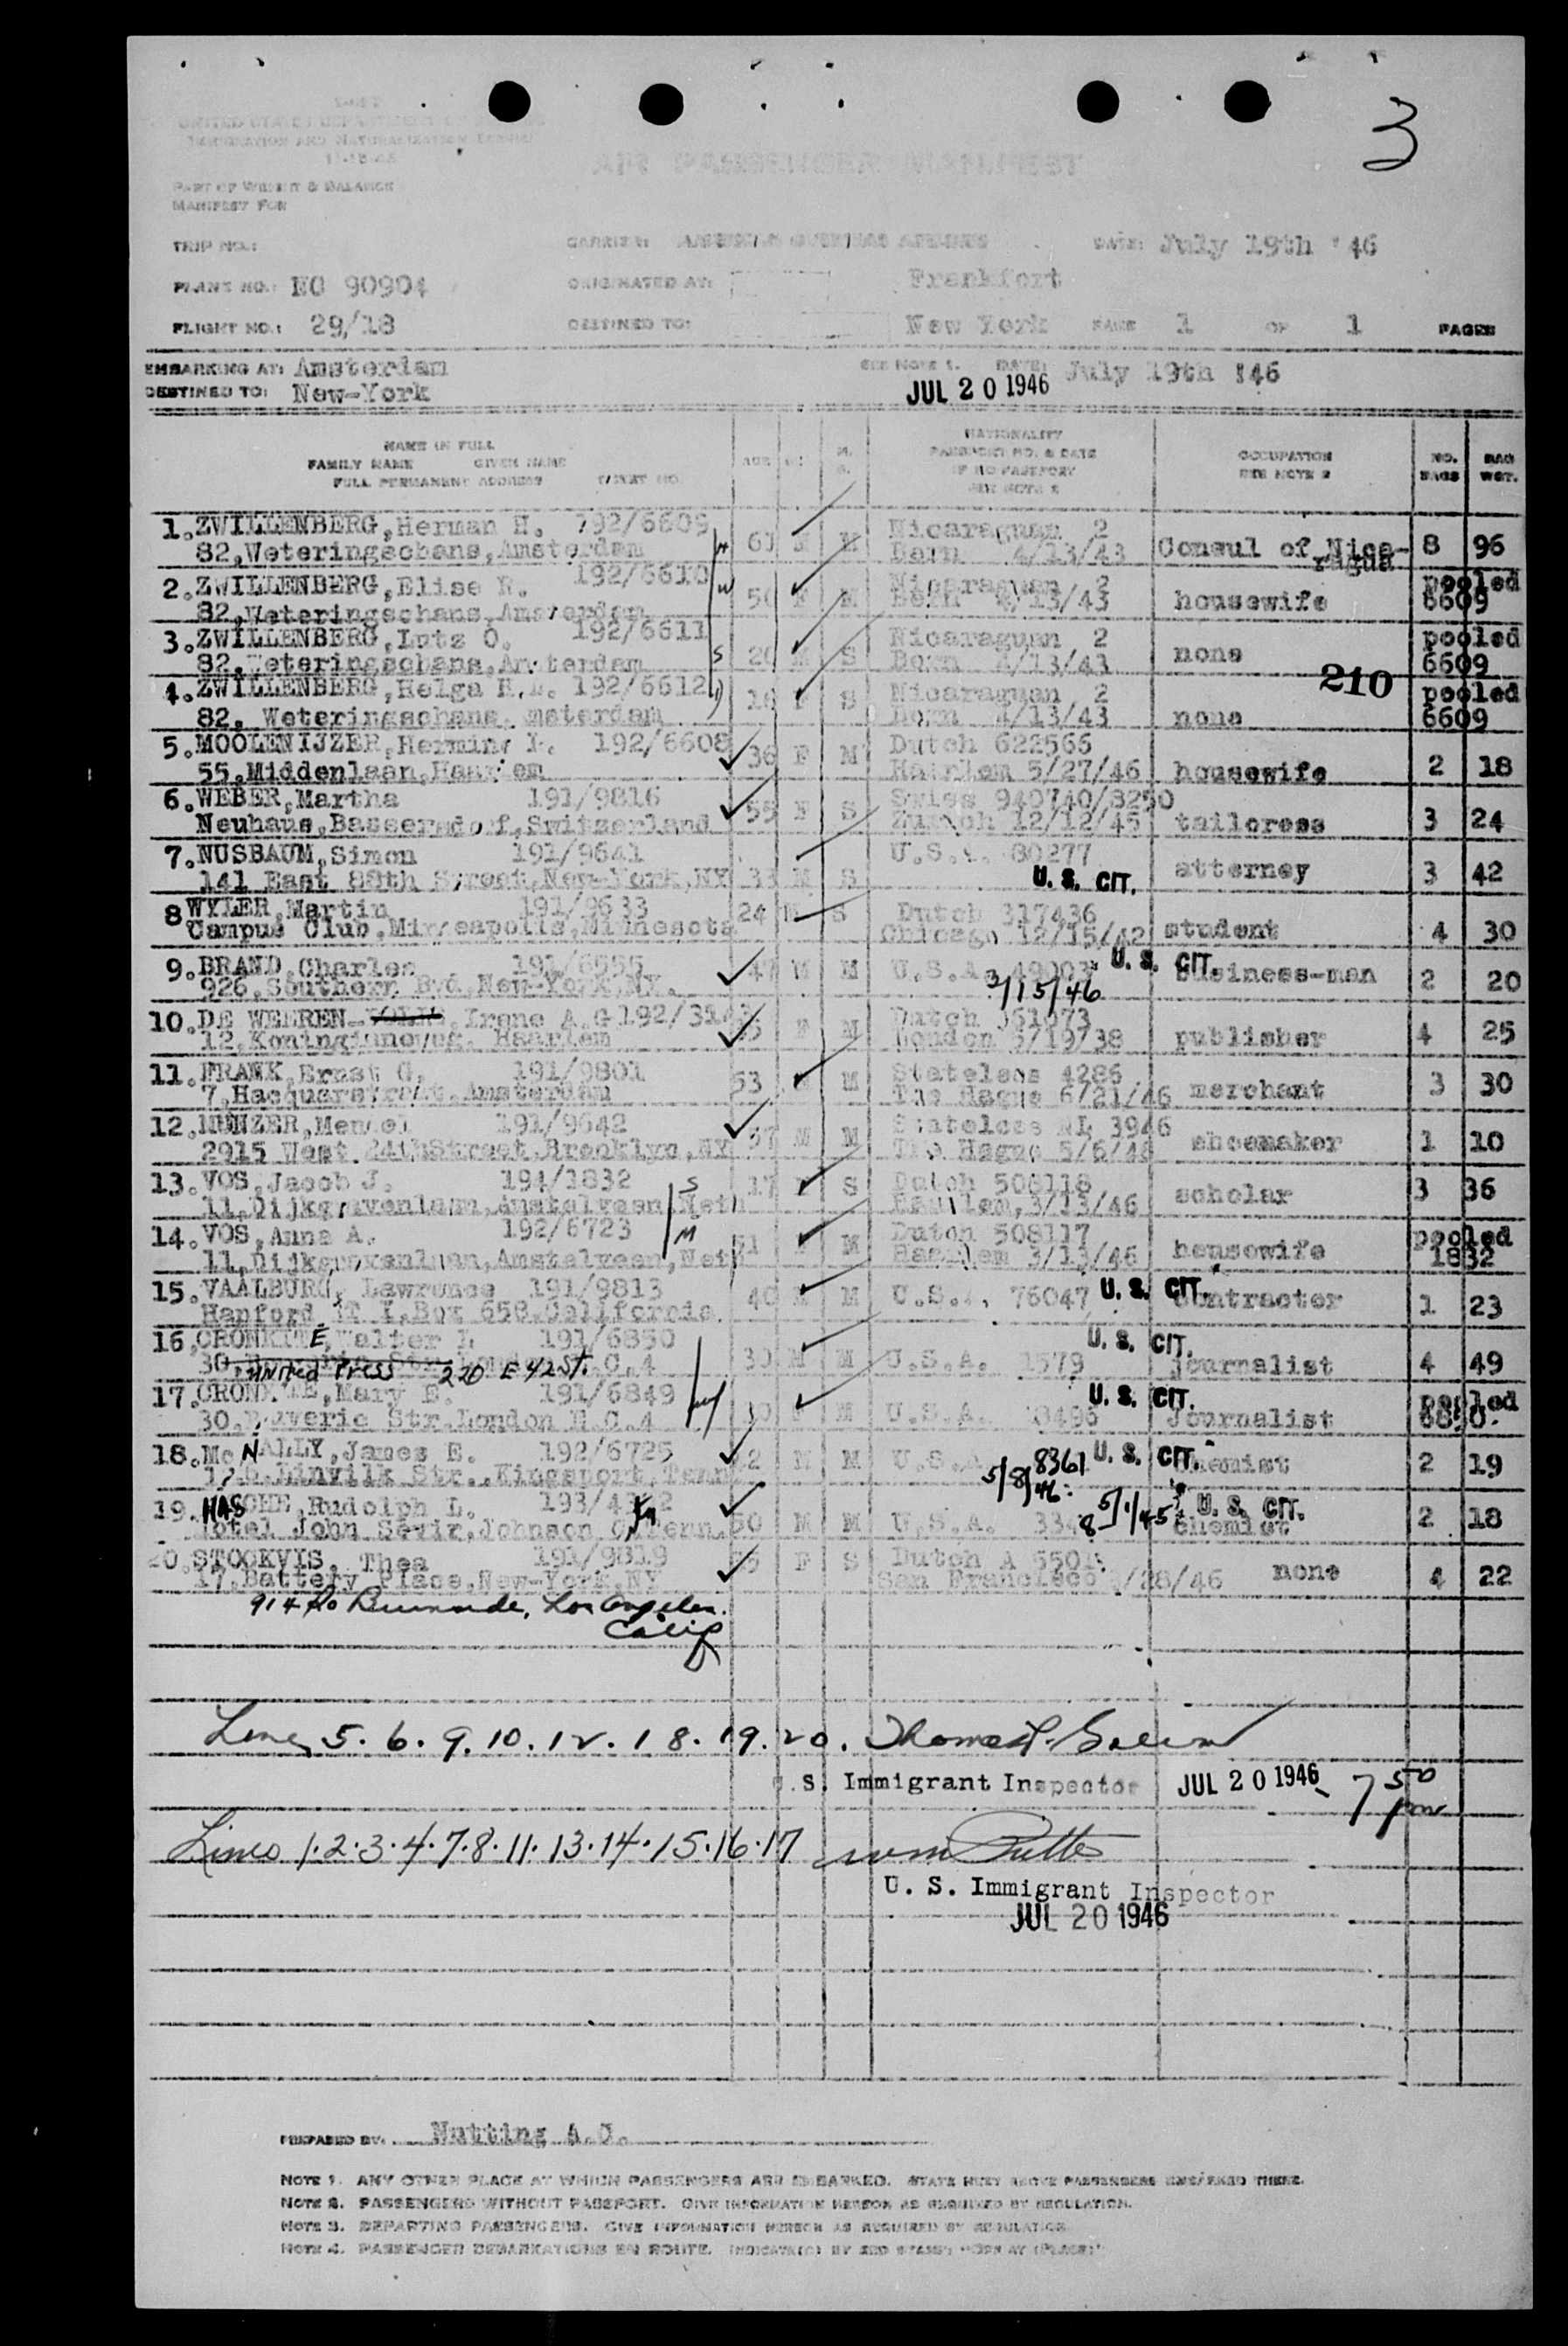 3
UNITED STATES DEPARTMENT OF
IMMIGRATION AND NATURALIZATION SERVICE
AIR PASSENGER MANIFEST
PART OF WEIGHT & BALANCE
MANIFEST FOR
TRIP NO.: CARRIER: AMERICAN OVERSEAS AIRLINES DATE: July 19th '46
PLANE NO.: NC 90904 ORIGINATED AT: Frankfort
FLIGHT NO.: 29/18 DESTINED TO: New York PAGE 1 OF 1 PAGES
EMBARKING AT: Amsterdam SEE NOTE 1. DATE: July 19th '46
DESTINED TO: New-York JUL 20 1946
NAME IN FULL
FAMILY NAME GIVEN NAME
FULL PERMANENT ADDRESS TICKET NO.
AGE
M. S.
NATIONALITY
PASSPORT NO. & DATE
IF NO PASSPORT
SEE NOTE 2
OCCUPATION
SEE NOTE 2
NO. BAGS
BAG WGT.
1. ZWILLENBERG, Herman H. 192/6609 M M Nicaraguan 2
82, Weteringschans, Amsterdam H Bern 4/13/43 Consul of Nica-ragua 8 96
2. ZWILLENBERG, Elise R. 192/6610 W 50 F M Nicaraguan 2 pooled
82, Weteringschans, Amsterdam Bern 4/13/43 housewife 6609
3. ZWILLENBERG, Lutz O. 192/6611 S 20 M S Nicaraguan 2 pooled
82, Weteringschans, Amsterdam Bern 4/13/43 none 6609
210
4. ZWILLENBERG, Helga H.L. 192/6612 F S Nicaraguan 2 pooled
82, Weteringschans, Amsterdam Bern 4/13/43 none 6609
5. MOOLENIJZER, Hermine 192/6608 36 F M Dutch 622566
55, Middenlaan, Haarlem Haarlem 5/27/46 housewife 2 18
6. WEBER, Martha 191/9816 55 F S Swiss 940740/8250
Neuhaus, Bassersdorf, Switzerland Zurich 12/12/45 tailoress 3 24
7. NUSBAUM, Simon 191/9641 33 M S U.S.A. 80277
141 East 88th Street, New-York, NY U. S. CIT. attorney 3 42
8 WYLER, Martin 191/9633 24 M S Dutch 317436
Campus Club, Minneapolis, Minnesota Chicago 12/15/42 student 4 30
9. BRAND, Charles 191/6555 47 M M U.S.A. U. S. CIT. business-man 2 20
926, Southern Bvd, New-York, NY. 3/15/46
10. DE WEEREN- Irene A.G 192/ F M Dutch 361073
12, Koninginneweg, Haarlem London 5/19/38 publisher 4 25
11. FRANK, Ernst G. 191/9801 53 M M Stateless 4286
7, Hacquarstraat, Amsterdam The Hague 6/21/46 merchant 3 30
12. MUNZER, Mendel 191/9642 57 M M Stateless NL 3946
2915 West 24thStreet, Brooklyn, NY The Hague 5/6/46 shoemaker 1 10
13. VOS, Jacob J. 194/1832 S 17 S Dutch 508118
11, Dijkgravenlaan, Amstelveen, Neth Haarlem, 3/13/46 scholar 3 36
14. VOS, Anna A. 192/6723 M 51 F M Dutch 508117 pooled
11, Dijkgravenlaan, Amstelveen, Neth Haarlem 3/13/46 housewife 1832
15. VAALBURG, Lawrence 191/9813 40 M M U.S.A. 76047 U. S. CIT. contractor 1 23
Hanford, RT 1, Box 658, California
16, CRONKITE, Walter L 191/6850 30 M M U.S.A. 1579 U. S. CIT. journalist 4 49
United Press 220 E 42 St.
17. CRONKITE, Mary E. 191/6849 W 30 F M U.S.A. U. S. CIT. journalist pooled 6850.
30, Bouverie Str. London E.C.4
18. McNALLY, James E. 192/6725 M M U.S.A. 8361 U. S. CIT. chemist 2 19
Linvilk Str., Kingsport, Tenn 5/8/46
19. HASCHE, Rudolph L. 193/ 50 M M U.S.A. U. S. CIT. chemist 2 18
Hotel John Sevir, Johnson C, Tenn.
20. STOCKVIS, Thea 191/9819 F S Dutch A
17, Battery Place, New-York, NY San Francisco /28/46 none 4 22
914 So Burnside, Los Angeles.
Calif
Lines 5. 6. 9. 10. 12. 18. 19. 20. Thomas
U.S. Immigrant Inspector JUL 20 1946 7 50 pm
Lines 1.2.3.4.7.8.11.13.14.15.16.17
U. S. Immigrant Inspector
JUL 20 1946
PREPARED BY: Nutting A.C.
NOTE 1. ANY OTHER PLACE AT WHICH PASSENGERS ARE EMBARKED. STATE NEXT ABOVE PASSENGERS EMBARKED THERE.
NOTE 2. PASSENGERS WITHOUT PASSPORT. GIVE INFORMATION HEREON AS REQUIRED BY REGULATION.
NOTE 3. DEPARTING PASSENGERS. GIVE INFORMATION HEREON AS REQUIRED BY REGULATION
NOTE 4. PASSENGER DEBARKATIONS EN ROUTE. INDICATE(D) BY RED STAMP: "OFF AT (PLACE)"